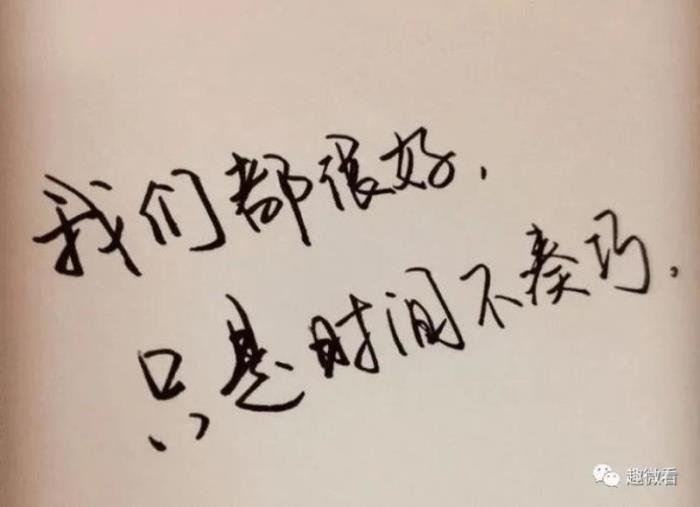 我们都很好，
只是时间不凑巧，
趣微看